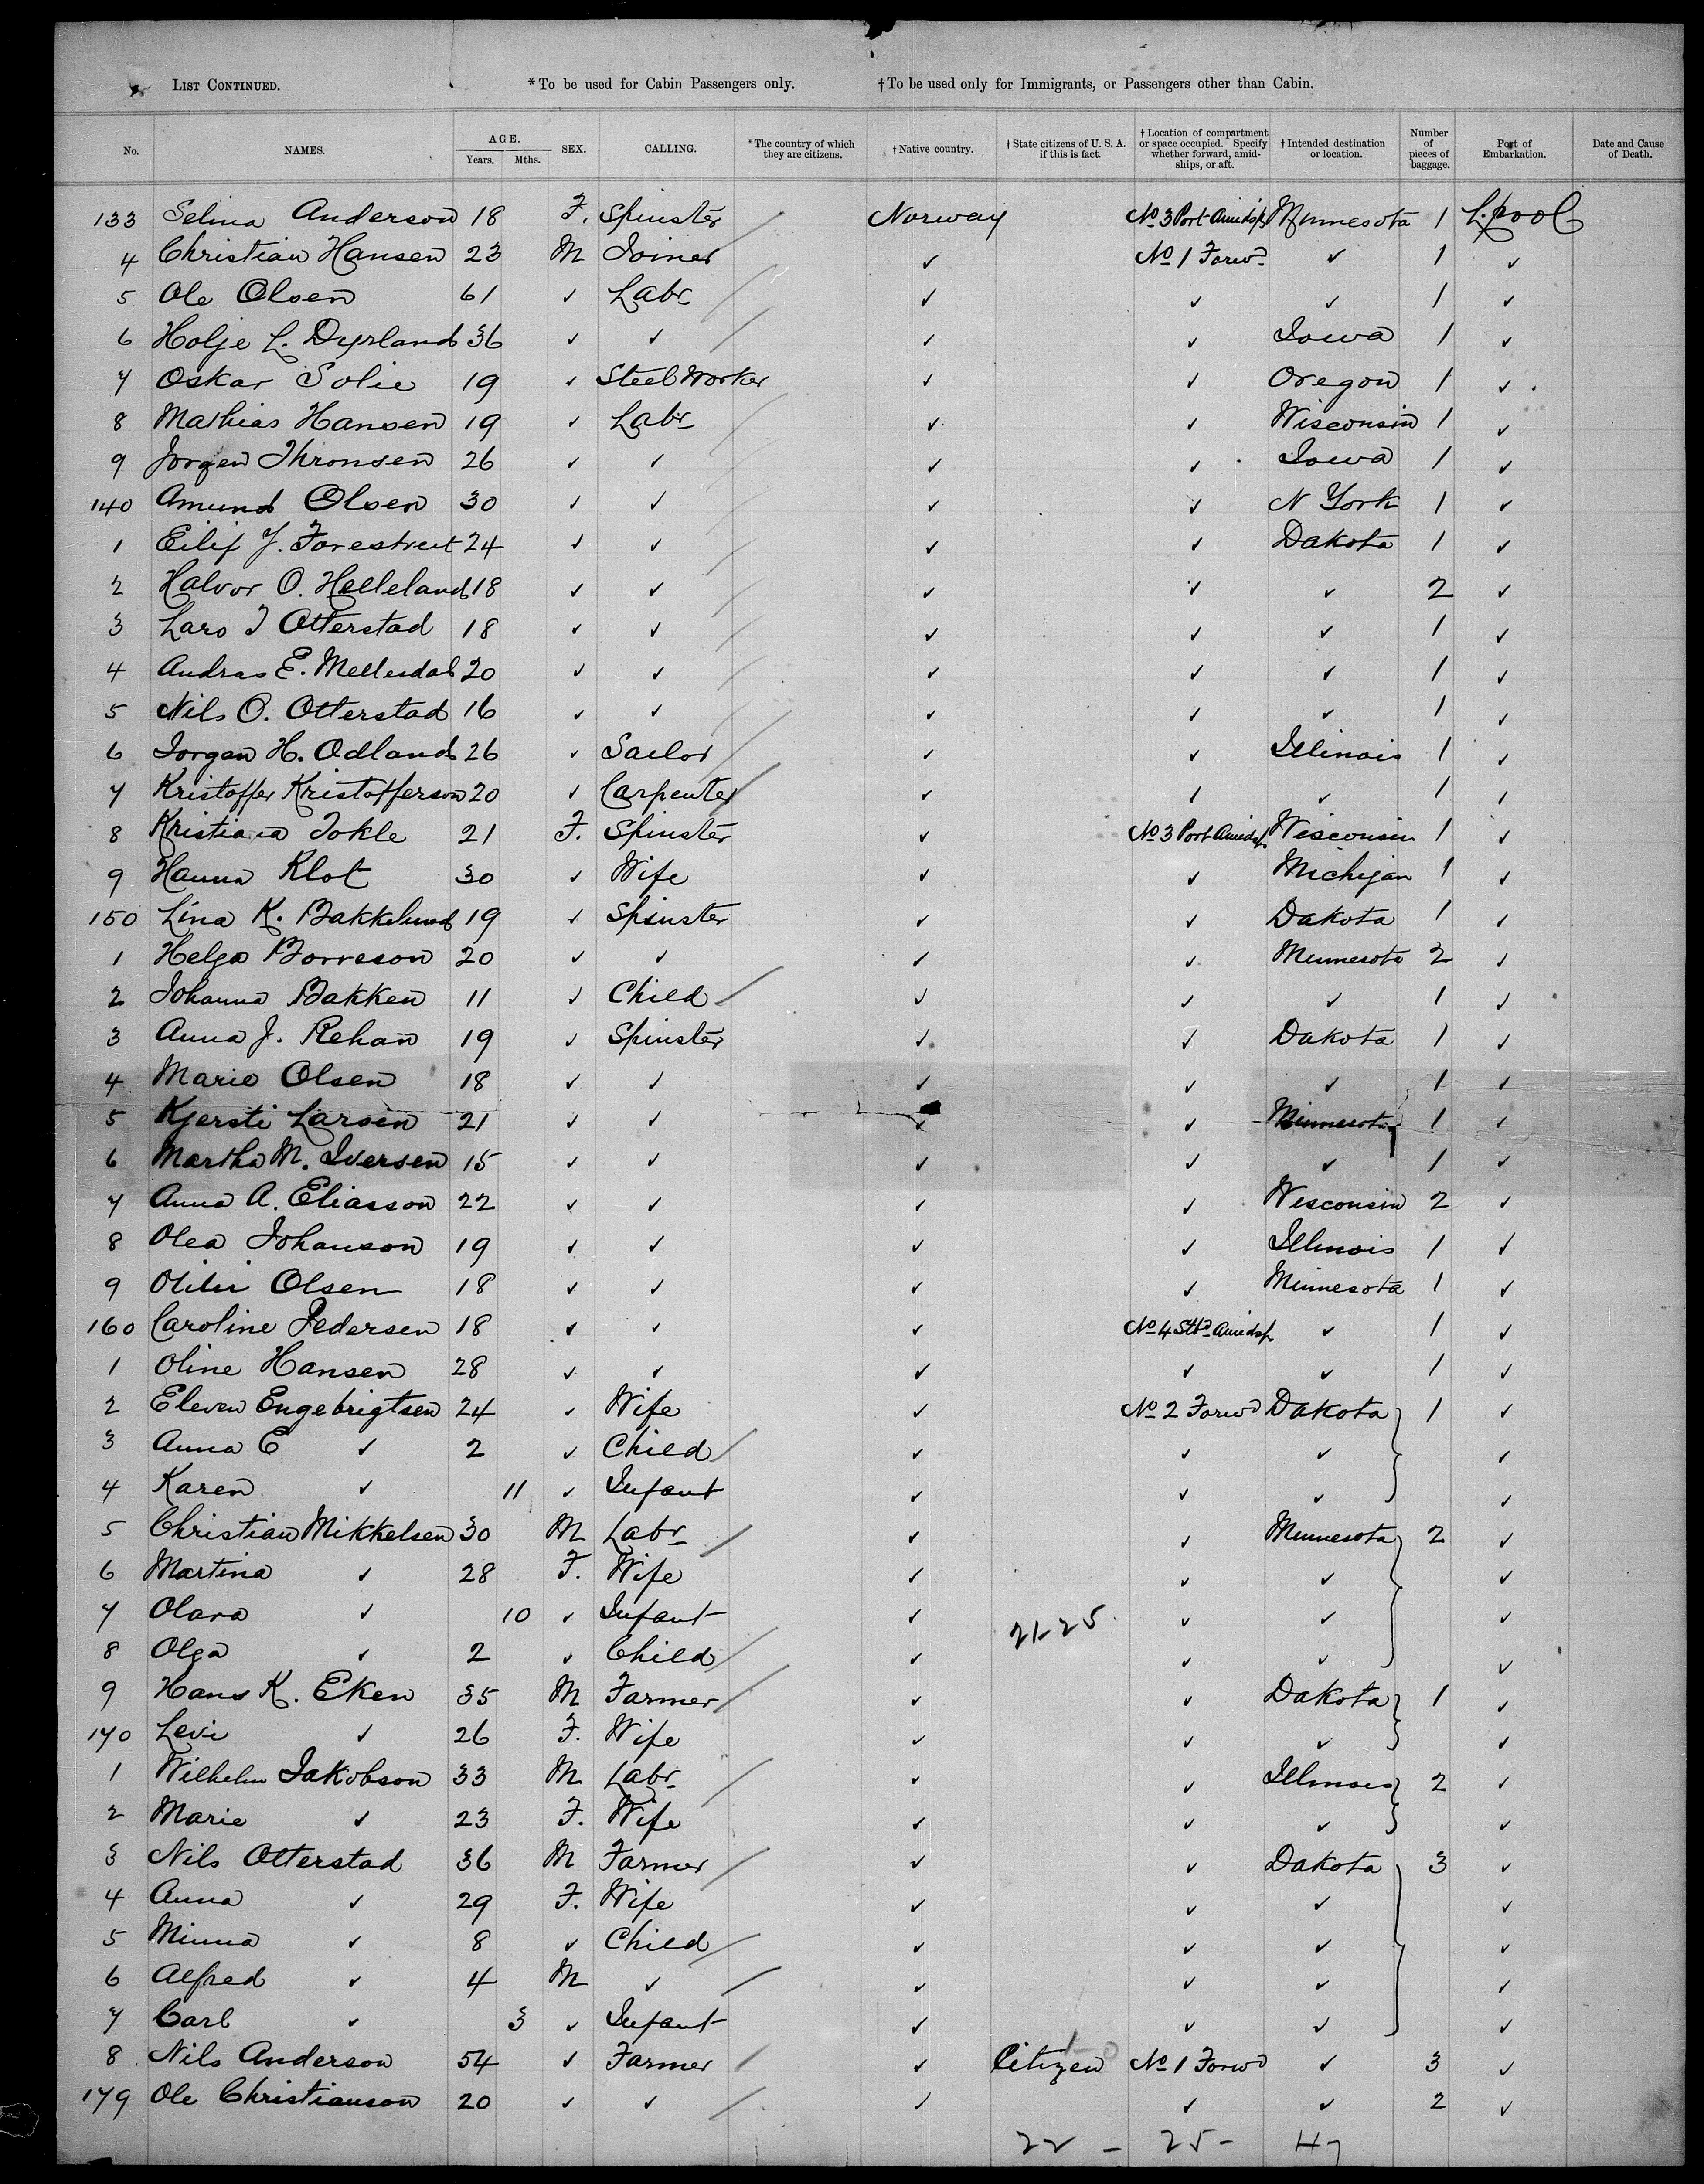 LIST CONTINUED. *To be used for Cabin Passengers only. †To be used only for Immigrants, or Passengers other than Cabin.
No. NAMES. AGE. Years. Mths. SEX. CALLING. *The country of which they are citizens. †Native country. †State citizens of U. S. A. if this is fact. †Location of compartment or space occupied. Specify whether forward, amidships, or aft. †Intended destination or location. Number of pieces of baggage. Port of Embarkation. Date and Cause of Death.
133 Selina Anderson 18 F. Spinster Norway No 3 Port Amidsp Minnesota 1 L.pool
4 Christian Hansen 23 M Joiner ✓ No 1 Forwd ✓ 1 ✓
5 Ole Olsen 61 ✓ Labr ✓ ✓ ✓ 1 ✓
6 Holje L. Dyrland 36 ✓ ✓ ✓ ✓ Iowa 1 ✓
7 Oskar Solie 19 ✓ Steel Worker ✓ ✓ Oregon 1 ✓
8 Mathias Hansen 19 ✓ Labr ✓ ✓ Wisconsin 1 ✓
9 Jorgen Thronsen 26 ✓ ✓ ✓ ✓ Iowa 1 ✓
140 Amund Olsen 30 ✓ ✓ ✓ ✓ N York 1 ✓
1 Eilif J. 24 ✓ ✓ ✓ ✓ Dakota 1 ✓
2 Halvor O. Helleland 18 ✓ ✓ ✓ ✓ ✓ 2 ✓
3 Lars I Otterstad 18 ✓ ✓ ✓ ✓ ✓ 1 ✓
4 Andras E. 20 ✓ ✓ ✓ ✓ ✓ 1 ✓
5 Nils O. Otterstad 16 ✓ ✓ ✓ ✓ ✓ 1 ✓
6 Jorgen H. Odland 26 ✓ Sailor ✓ ✓ Illinois 1 ✓
7 Kristoffer Kristofferson 20 ✓ Carpenter ✓ ✓ ✓ 1 ✓
8 Kristiana Tokle 21 F. Spinster ✓ No 3 Port Amidsp Wisconsin 1 ✓
9 Hanna Klot 30 ✓ Wife ✓ ✓ Michigan 1 ✓
150 Lina K. Bakkelund 19 ✓ Spinster ✓ ✓ Dakota 1 ✓
1 Helga Borreson 20 ✓ ✓ ✓ ✓ Minnesota 2 ✓
2 Johanna Bakken 11 ✓ Child ✓ ✓ ✓ 1 ✓
3 Anna J. Rehan 19 ✓ Spinster ✓ ✓ Dakota 1 ✓
4 Marie Olsen 18 ✓ ✓ ✓ ✓ ✓ 1 ✓
5 Kjersti Larsen 21 ✓ ✓ ✓ ✓ Minnesota 1 ✓
6 Martha M. Iversen 15 ✓ ✓ ✓ ✓ ✓ 1 ✓
7 Anna A. Eliasson 22 ✓ ✓ ✓ ✓ Wisconsin 2 ✓
8 Olea Johanson 19 ✓ ✓ ✓ ✓ Illinois 1 ✓
9 Olsen 18 ✓ ✓ ✓ ✓ Minnesota 1 ✓
160 Caroline Pedersen 18 ✓ ✓ ✓ No 4 Stbd Amidsp ✓ 1 ✓
1 Oline Hansen 28 ✓ ✓ ✓ ✓ ✓ 1 ✓
2 Eleven Engebrigtsen 24 ✓ Wife ✓ No 2 Forwd Dakota 1 ✓
3 Anna E ✓ 2 ✓ Child ✓ ✓ ✓ ✓
4 Karen ✓ 11 ✓ Infant ✓ ✓ ✓ ✓
5 Christian Mikkelsen 30 M Labr ✓ ✓ Minnesota 2 ✓
6 Martina ✓ 28 F. Wife ✓ ✓ ✓ ✓
7 Olara ✓ 10 ✓ Infant ✓ 21-25 ✓ ✓ ✓
8 Olga ✓ 2 ✓ Child ✓ ✓ ✓ ✓
9 Hans K. Eken 35 M Farmer ✓ ✓ Dakota 1 ✓
170 Levi ✓ 26 F. Wife ✓ ✓ ✓ ✓
1 Wilhelm Jakobson 33 M Labr ✓ ✓ Illinois 2 ✓
2 Marie ✓ 23 F. Wife ✓ ✓ ✓ ✓
3 Nils Otterstad 36 M Farmer ✓ ✓ Dakota 3 ✓
4 Anna ✓ 29 F. Wife ✓ ✓ ✓ ✓
5 Minna ✓ 8 ✓ Child ✓ ✓ ✓ ✓
6 Alfred ✓ 4 M ✓ ✓ ✓ ✓ ✓
7 Carl ✓ 3 ✓ Infant ✓ ✓ ✓ ✓
8 Nils Anderson 54 ✓ Farmer ✓ Citizen No 1 Forwd ✓ 3 ✓
179 Ole Christianson 20 ✓ ✓ ✓ ✓ ✓ 2 ✓
22 - 25 - 47